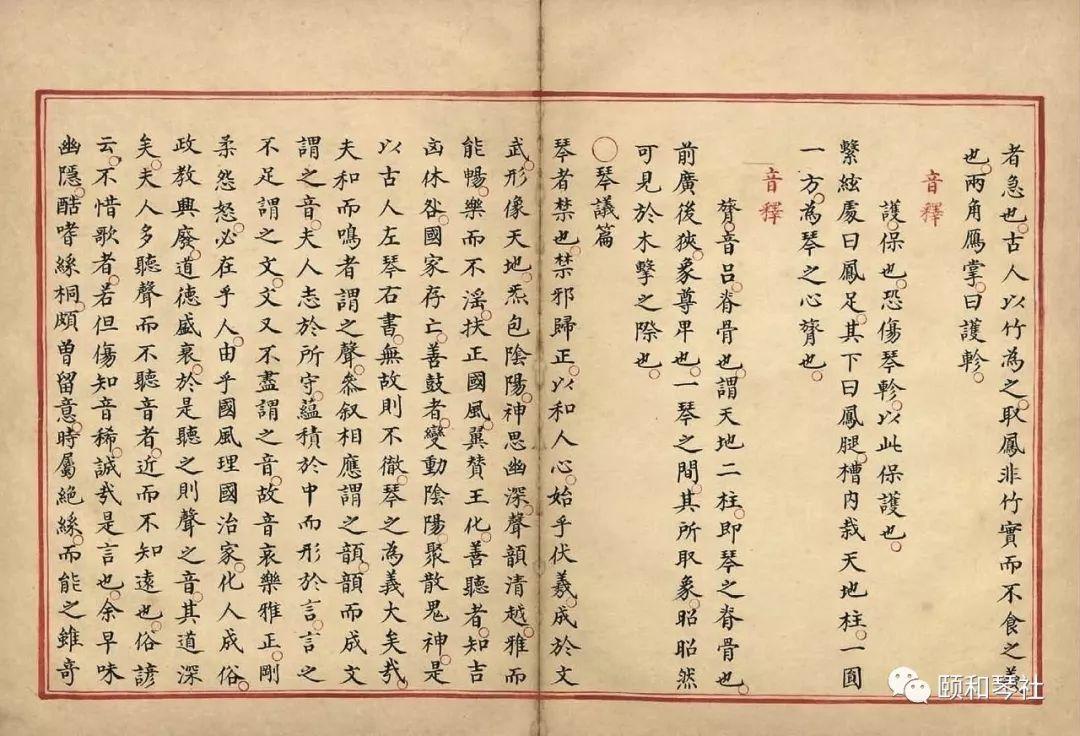 者急也。古人以竹為之。取鳳非竹實而不食之義
也。兩角鴈掌。曰護軫。
音釋
護。保也。恐傷琴軫。以此保護也。
繫絃處曰鳳足。其下曰鳳腿。槽內栽天地柱。一圓
一方。為琴之心膂也。
音釋
膂。音呂。脊骨也。謂天地二柱。即琴之脊骨也。
前廣後狹。象尊卑也。一琴之間。其所取象。昭昭然
可見於木擊之際也。
○琴議篇
琴者禁也。禁邪歸正。以和人心。始乎伏羲。成於文
武。形像天地。炁包陰陽。神思幽深。聲韻清越。雅而
能暢。樂而不滛。扶正國風。翼贊王化。善聽者。知吉
凶休咎。國家存亡。善鼓者。變動陰陽。聚散鬼神。是
以古人左琴右書。無故則不徹。琴之為義大矣哉。
夫和而鳴者謂之聲。叅叙相應謂之韻。韻而成文
謂之音。夫人志於所守。蘊積於中而形於言。言之
不足謂之文。文又不盡謂之音。故音哀樂雅正。剛
柔怨怒。必在乎人。由乎國風理國治家。化人成俗。
政教興廢。道德盛衰。於是聽之則聲之音。其道深
矣。夫人多聽聲而不聽音者。近而不知遠也。俗諺
云。不惜歌者。若但傷知音稀。誠哉是言也。余早味
幽隱。酷嗜絲桐。頗曾留意。時屬絶絲。而能之雖奇
颐和琴社